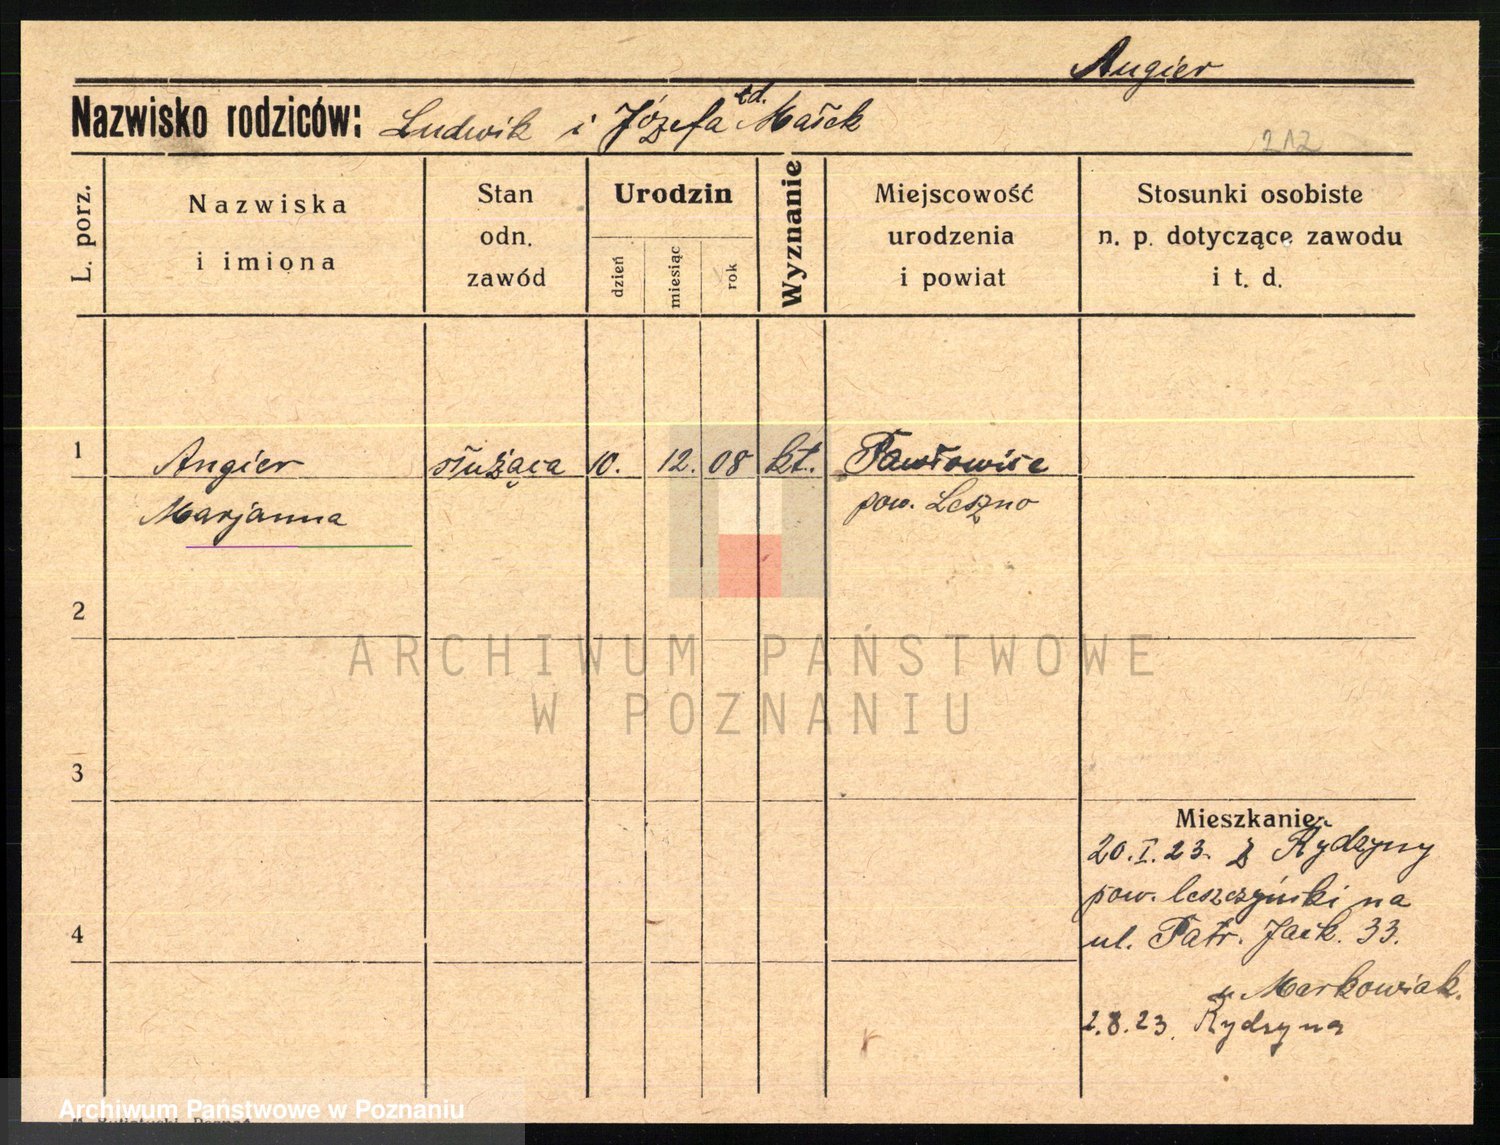 Angier
Nazwisko rodziców: Ludwik i Józefa zd. Małek
212
L. porz.
Nazwiska
i imiona
Stan
odn.
zawód
Urodzin
dzień
miesiąc
rok
Wyznanie
Miejscowość
urodzenia
i powiat
Stosunki osobiste
n. p. dotyczące zawodu
i t. d.
1
Angier służąca 10. 12. 08 kt. Pawłowice
Marjanna pow. Leszno
2
ARCHIWUM PAŃSTWOWE
W POZNANIU
3
Mieszkanie
20.I.23. z Rydzyny
pow. leszczyński na
4
ul. Patr. Jack. 33.
u Markowiak.
2.8.23. Rydzyna
Archiwum Państwowe w Poznaniu